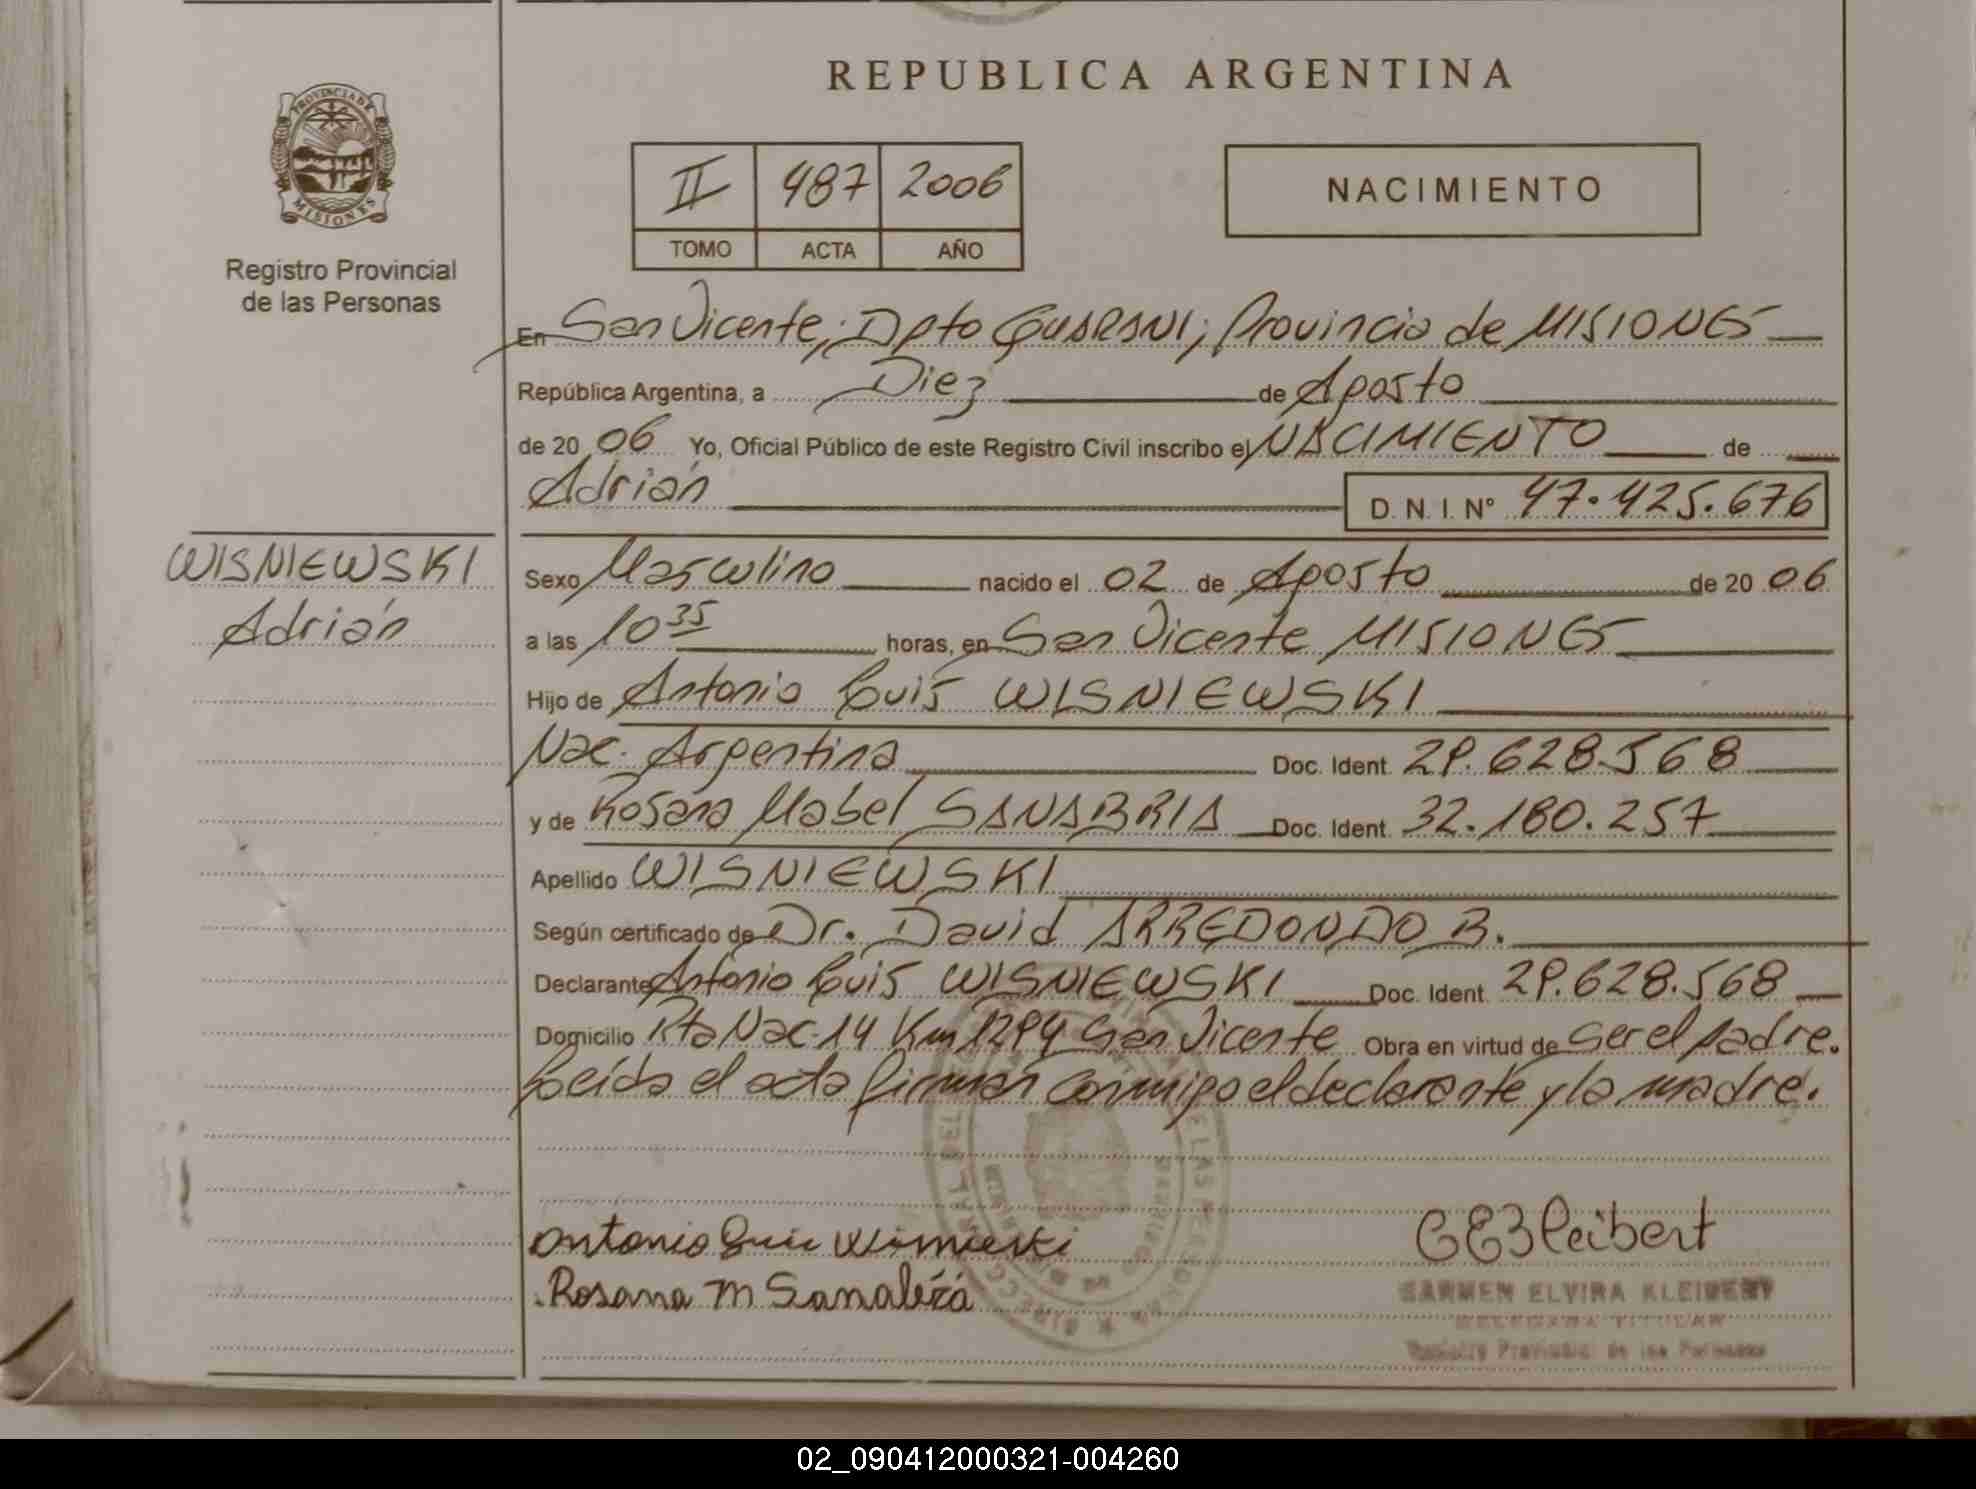 REPUBLICA ARGENTINA
PROVINCIA DE
MISIONES
Registro Provincial
de las Personas
II 487 2006
TOMO ACTA AÑO
NACIMIENTO
En San Vicente, Dpto GUARANI, Provincia de MISIONES
República Argentina, a Diez de Agosto
de 20 06 Yo, Oficial Público de este Registro Civil inscribo el NACIMIENTO de
Adrián
D. N. I. Nº 47.425.676
WISNIEWSKI
Adrián
Sexo Masculino nacido el 02 de Agosto de 20 06
a las 10 35 horas, en San Vicente MISIONES
Hijo de Antonio Luis WISNIEWSKI
Nac. Argentina Doc. Ident. 29.628.568
y de Rosana Mabel SANABRIA Doc. Ident. 32.180.257
Apellido WISNIEWSKI
Según certificado de Dr. David ARREDONDO B.
Declarante Antonio Luis WISNIEWSKI Doc. Ident. 29.628.568
Domicilio Rta Nac. 14 Km 1294 San Vicente Obra en virtud de ser el padre.
Leída el acta firman conmigo el declarante y la madre.
Antonio Luis Wisnieski
Rosana M Sanabria
CEKleibert
CARMEN ELVIRA KLEIBERT
DELEGADA TITULAR
Registro Provincial de las Personas
02_090412000321-004260